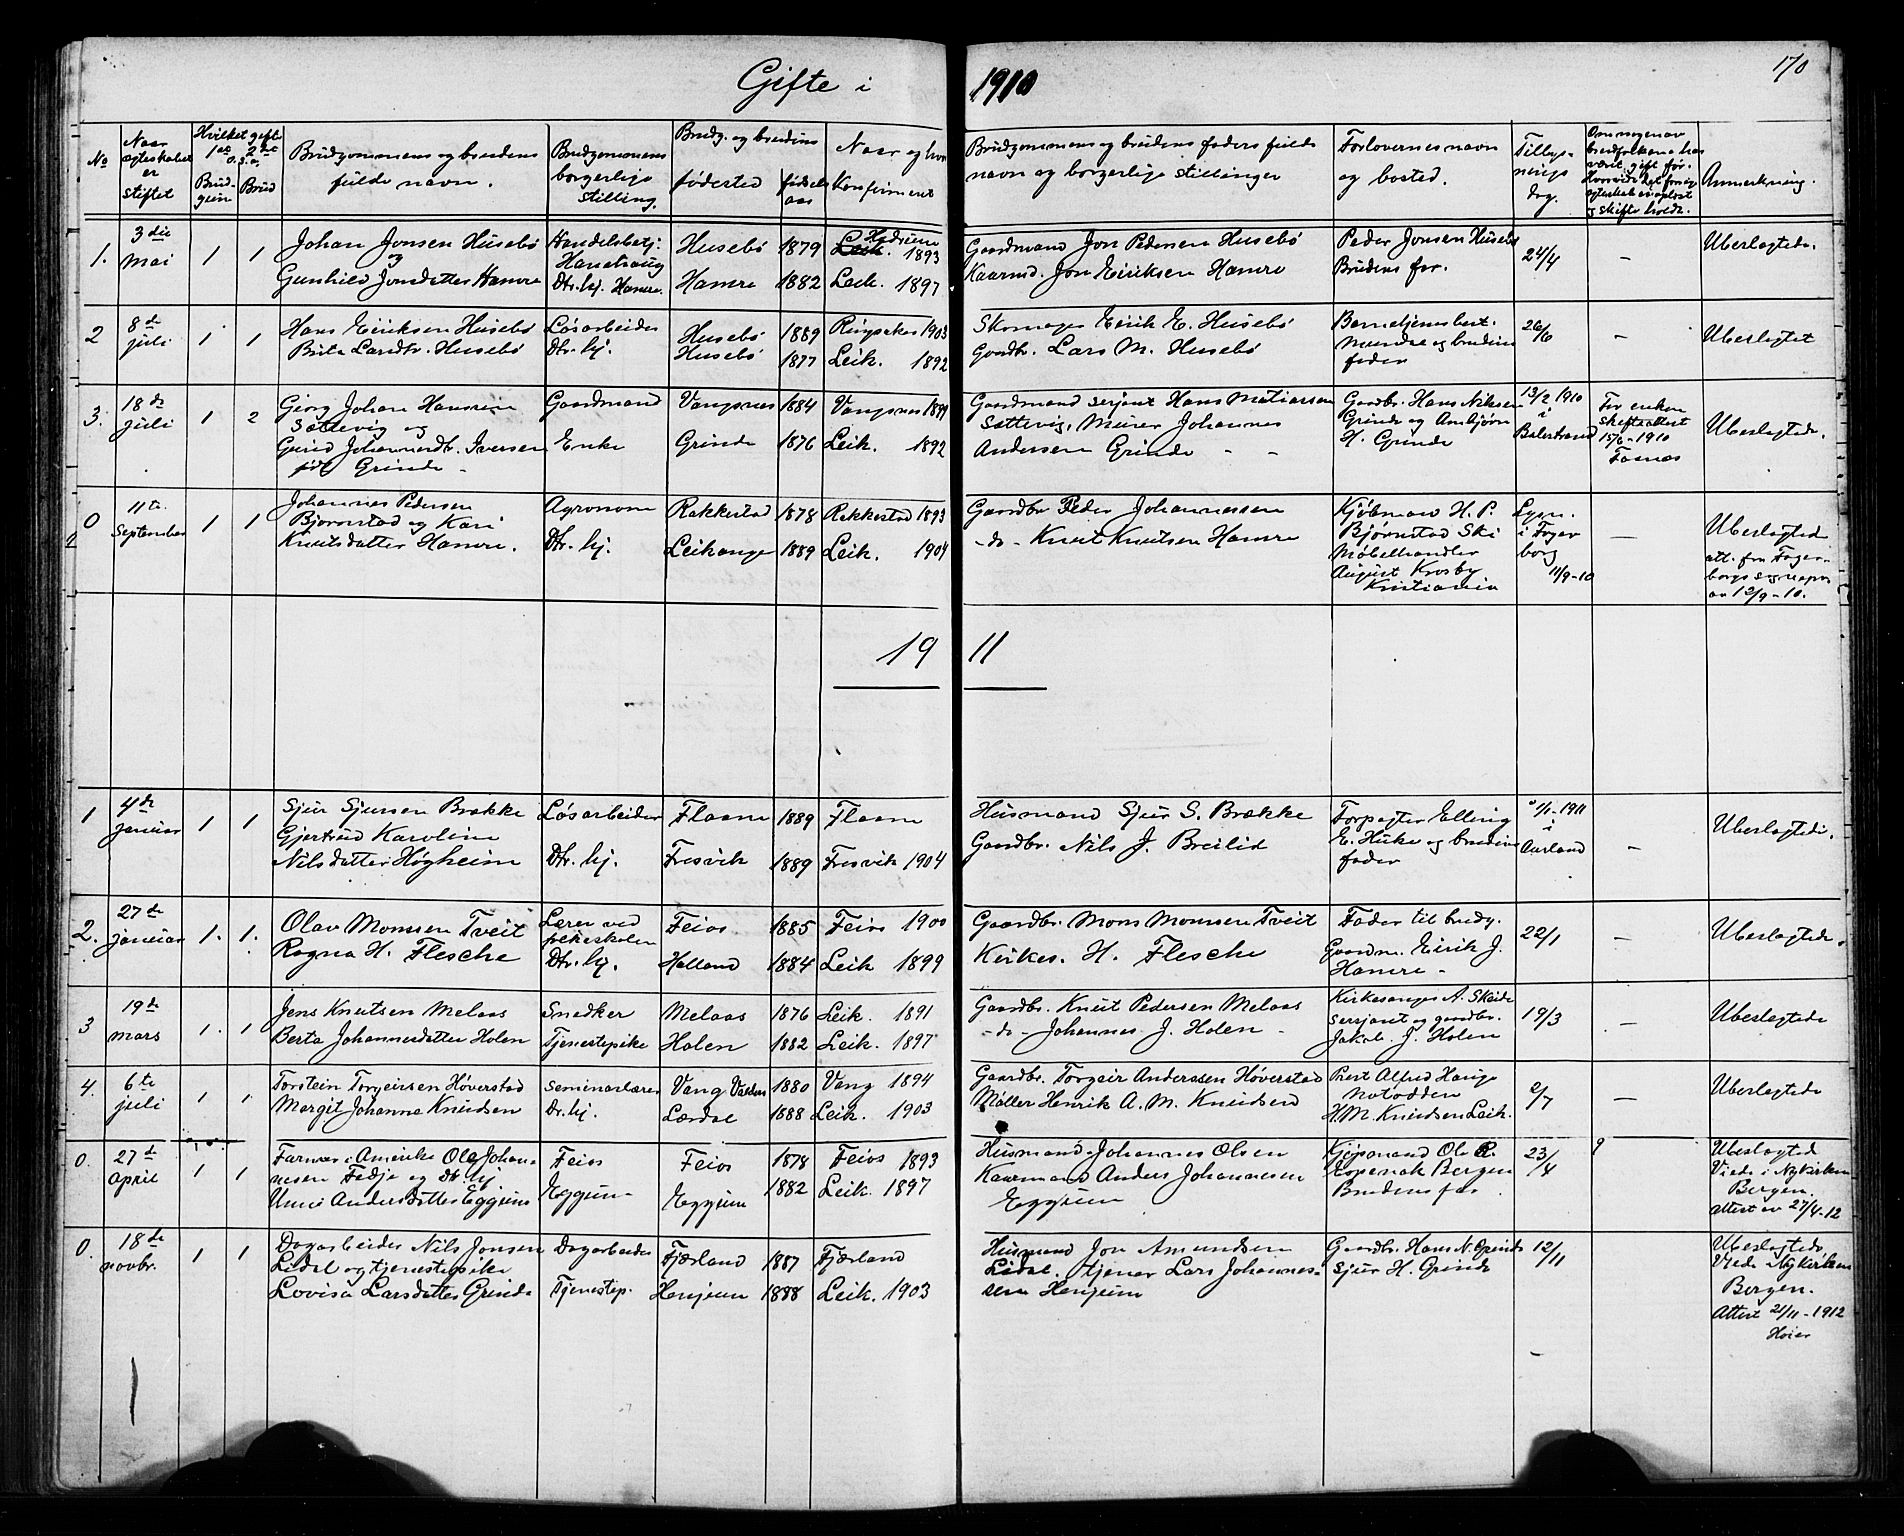 Gifte i 1910
170
No
Naar ægteskabet er stiftet
Hvilket gifte 1ste 2det o.s.v.
Brudgom
Brud
Brudgommens og brudens fulde navn.
Brudgommens borgerlige stilling.
Brudg. og brudens
fødested
fødselsaar
Naar og hvor konfirmeret
Brudgommens og brudens faders fulde navn og borgerlige stillinger
Forlovernes navn og bosted.
Tillysnings dag.
Om nogen av brudfolkene har været gift før.
Anmerkning.
1. 3die mai 1 1
Johan Jonsen Husebø og
Gunhild Jonsdatter Hamre
Husebø 1879 1893
Dtr. hj. Hamre. Hamre 1882 Leik. 1897
Gaardmand Jon Pedersen Husebø
Kaarmd. Jon Eiriksen Hamre
Peder Jonsen Husebø
Brudens far.
24/4 – Uberlagtede.
2 8de juli 1 1
Hans Eiriksen Husebø Løsarbeider Husebø 1889 Ringsaker 1903
Brita Larsdtr. Husebø Dtr. hj. Husebø 1877 Leik. 1892
Skomager Eirik E. Husebø
Gardbr. Lars M. Husebø
og brudens
fader
26/6 – Uberlagtet
3. 18de juli 1 2
Georg Johan Hansen Gaardmand Vangsnes 1884 Vangsnes 1899
Sættevig og
Gurid Johannesdt. Iversen Enke Grinde 1876 Leik. 1892
født Grinde –
Gaardmand serjant Hans Matiassen
Sættevig, Murer Johannes
Andersen Grinde – –
Gardbr. Hans Nilssen
Grinde og Ambjørn
H. Grinde
13/2 1910
i
Balestrand
For enken
skifteattest
15/6 - 1910
Uberlagtede.
0 11te September 1 1
Johannes Pedersen Agronom Rakkestad 1878 Rakkestad 1893
Bjørnstad og Kari
Knutsdatter Hamre. Dtr. hj. Leikanger 1889 Leik. 1904
Gaardbr Peder Johannessen
–do– Knut Knutsen Hamre
Kjøbmand H. P.
Bjørnstad Ski
Møbelhandler
August Krosby
Kristiania
Lyst.
i Fagerborg
11/9 - 10
–
Uberlagtede
att. fra Fagerborgs sognepr.
av 12/9 - 10.
19 11
1 4de januar 1 1
Sjur Sjursen Brække Løsarbeider Flaam 1889 Flaam
Gjertrud Karoline
Nilsdatter Høgheim Dtr. hj. Fresvik 1889 Fresvik 1904
Husmand Sjur S. Brække
Gaardbr. Nils J. Breilid
Forpagter Elling
E. Huke og brudens
fader
1/1 - 1911
i
Aurland
– Uberlagtede.
2. 27de januar 1. 1.
Olav Monssen Tveit Lærer ved folkeskolen Feios 1885 Feios 1900
Ragna H. Flesche Dtr. hj. Holland 1884 Leik 1899
Gaardbr. Mons Monssen Tveit
Kirkes. H. Flesche
Fader til brudg.
Gaardm. Eirik J.
Hamre –
22/1 – Uberlagtede.
3 19de mars 1. 1
Jens Knutsen Melaas Snedker Melaas 1876 Leik. 1891
Berta Johannesdatter Holen Tjenestepike Holen 1882 Leik. 1897
Gaardbr. Knut Pedersen Melaas
–do– Johannes J. Holen –
Kirkesanger A. Skeide
Serjant og gaardbr.
Jakob J. Holen
19/3 – Uberlagtede
4. 6te juli 1 1
Torstein Torgeirsen Høverstad seminarlærer Vang Valdres 1880 Vang 1894
Margit Johanne Knudsen Dr. hj. Lærdal 1888 Leik. 1903
Gaardbr. Torgeir Anderssen Høverstad
Møller Henrik A. M. Knudsen
Prest Alfred Hauge
Notodden
H. M. Knudsen Leik.
2/7 – Uberlagtede
0. 27d april 1 1
Farmer i Amerika Ole Johannesen Fedje og Dtr. hj. Feios Feios 1878 Feios 1893
Unni Andersdatter Eggum Eggum – Eggum 1882 Leik. 1897
Husmand Johannes Olsen
Kaarmand Anders Johannesen
Eggum
Kjøpmand Ole R.
Kopenak Bergen
Brudens far
23/4
Uberlagted
Viede i Nykirken
Bergen.
attest av 27/4 - 12
0. 18de novbr. 1 1
Dagarbeider Nils Jonsen Dagarbeider Fjærland 1887 Fjærland
Lidal og tjenestepike
Lovisa Larsdatter Grinde Tjenestep. Henjum 1888 Leik. 1903
Husmand Jon Amundsen
Lidal. tjener Lars Johannessen Henjum
Gaardbr. Hans N. Grinde
Sjur H. Grinde
12/11
Uberlagtede
Viede Nykirken
Bergen.
Attest 21/11 - 1912